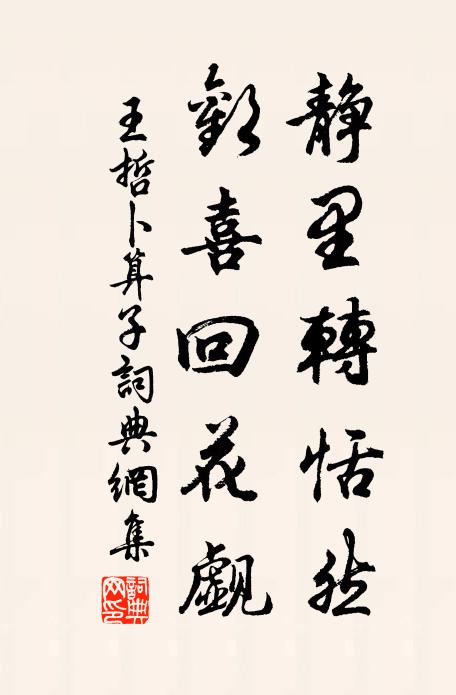 靜里轉恬然
歡喜回花覷
王哲卜算子詞典網集
詞典网印